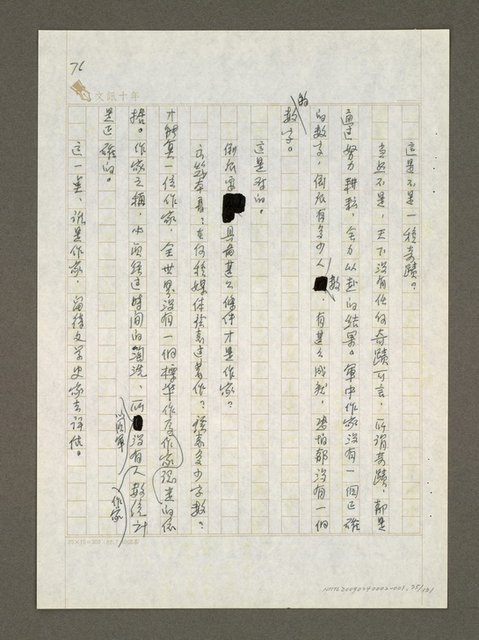 76
文訊十年
這是不是一種奇蹟?
當然不是,天下沒有任何奇蹟可言,所謂奇蹟,都是
通過努力耕耘,全力以赴的結果。軍中作家沒有一個正確
的數字,像派有多少人數 有甚麼成就,恐怕都沒有一個
的
數字。
這是對的。
像派軍 具備甚麼條件才是作家?
文藝本身?在何種媒体發表過著作?發表多少字數?
才能算一位作家,全世界沒有一個標準作為作家認定的依
據。作家之稱,必須經過時間的 ,所 沒有人數統計
以國軍
作家
是正確的。
這一點,誰是作家,留待文學史家去評估。
NMTL20090240002-001, 75/181